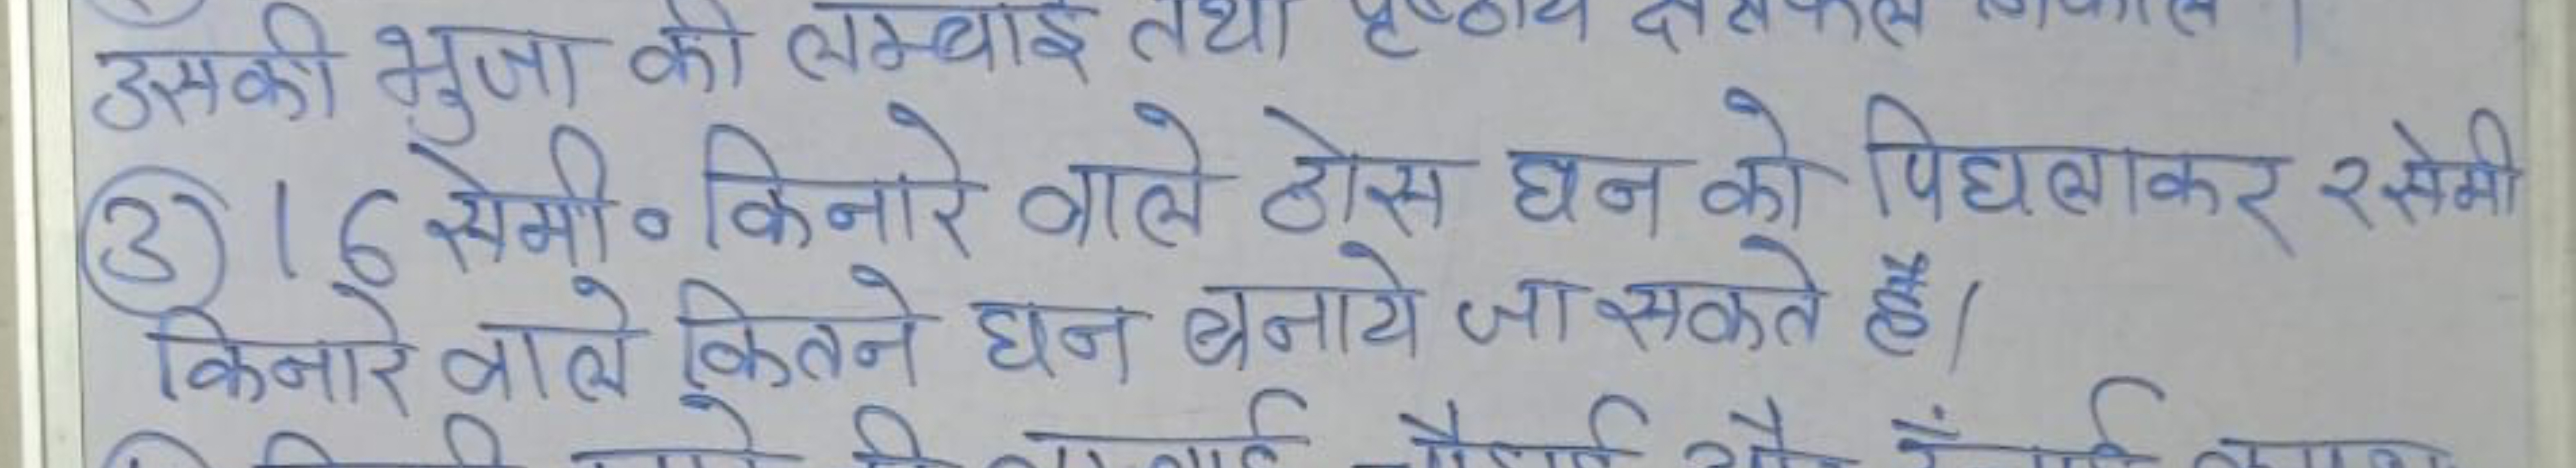 उसकी भुजा की लम्बाई तथा पृष्ठीय क्षेत्रफल
③ 16 सेमी० किनारे वाले ठोस घन को पिघलाकर 2 सेमी
किनारे वाले कितने घन बनाये जा सकते हैं।